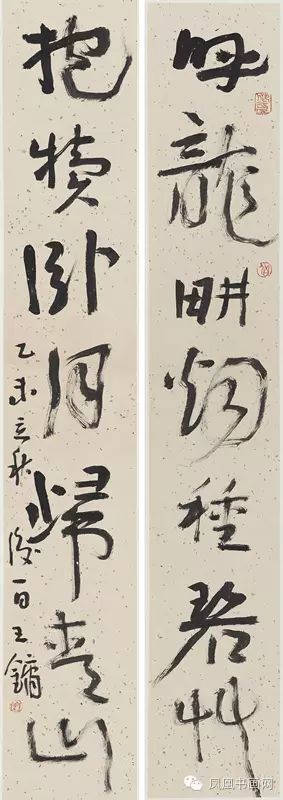 呼龍畊烟種碧艸
抱犢卧月歸青山
乙未立秋後一日王鏞
凤凰书画网